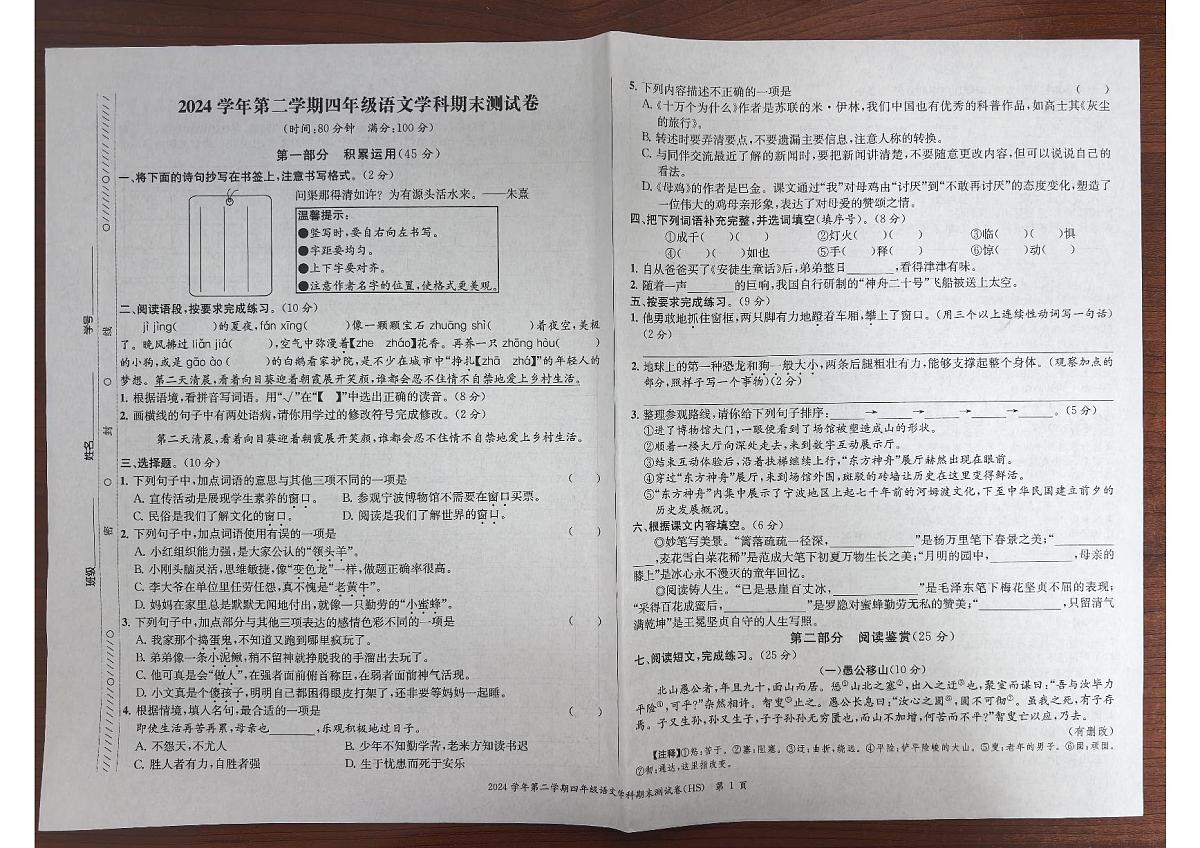 2024 学年第二学期四年级语文学科期末测试卷
(时间:80分钟 满分:100分)
第一部分 积累运用(45 分)
一、将下面的诗句抄写在书签上,注意书写格式。(2 分)
问渠那得清如许？为有源头活水来。——朱熹
温馨提示:
●竖写时,要自右向左书写。
●字距要均匀。
●上下字要对齐。
●注意作者名字的位置,使格式更美观。
二、阅读语段,按要求完成练习。(10 分)
jì jìng( )的夏夜,fán xīng( )像一颗颗宝石 zhuāng shì( )着夜空,美极
了。晚风拂过 liǎn jiá( ),空气中弥漫着【zhe zháo】花香。再养一只 zhōng hòu( )
的小狗,或是 gāo ào ( )的白鹅看家护院,是不少在城市中“挣扎【zhā zhá】”的年轻人的
梦想。第二天清晨,看着向日葵迎着朝霞展开笑颜,谁都会忍不住情不自禁地爱上乡村生活。
1. 根据语境,看拼音写词语。用“√”在“【 】”中选出正确的读音。(8 分)
2. 画横线的句子中有两处语病,请你用学过的修改符号完成修改。(2 分)
第二天清晨,看着向日葵迎着朝霞展开笑颜,谁都会忍不住情不自禁地爱上乡村生活。
三、选择题。(10 分)
1. 下列句子中,加点词语的意思与其他三项不同的一项是 ( )
A. 宣传活动是展现学生素养的窗口。 B. 参观宁波博物馆不需要在窗口买票。
C. 民俗是我们了解文化的窗口。 D. 阅读是我们了解世界的窗口。
2. 下列句子中,加点词语使用有误的一项是 ( )
A. 小红组织能力强,是大家公认的“领头羊”。
B. 小刚头脑灵活,思维敏捷,像“变色龙”一样,做题正确率很高。
C. 李大爷在单位里任劳任怨,真不愧是“老黄牛”。
D. 妈妈在家里总是默默无闻地付出,就像一只勤劳的“小蜜蜂”。
3. 下列句子中,加点部分与其他三项表达的感情色彩不同的一项是 ( )
A. 我家那个捣蛋鬼,不知道又跑到哪里疯玩了。
B. 弟弟像一条小泥鳅,稍不留神就挣脱我的手溜出去玩了。
C. 他可真是会“做人”,在强者面前俯首称臣,在弱者面前神气活现。
D. 小文真是个傻孩子,明明自己都困得眼皮打架了,还非要等妈妈一起睡。
4. 根据情境,填人名句,最合适的一项是 ( )
即使生活再苦再累,母亲也______,乐观积极地过日子。
A. 不怨天,不尤人 B. 少年不知勤学苦,老来方知读书迟
C. 胜人者有力,自胜者强 D. 生于忧患而死于安乐
学号
姓名
班级
线
封
密
5. 下列内容描述不正确的一项是 ( )
A.《十万个为什么》作者是苏联的米·伊林,我们中国也有优秀的科普作品,如高士其《灰尘
的旅行》。
B. 转述时要弄清要点,不要遗漏主要信息,注意人称的转换。
C. 与同伴交流最近了解的新闻时,要把新闻讲清楚,不要随意更改内容,但可以说说自己的
看法。
D.《母鸡》的作者是巴金。课文通过“我”对母鸡由“讨厌”到“不敢再讨厌”的态度变化,塑造了
一位伟大的鸡母亲形象,表达了对母爱的赞颂之情。
四、把下列词语补充完整,并选词填空(填序号)。(8 分)
①成千( )( ) ②灯火( )( ) ③临( )( )惧
④( )( )如也 ⑤手( )释( ) ⑥惊( )动( )
1. 自从爸爸买了《安徒生童话》后,弟弟整日______,看得津津有味。
2. 随着一声______的巨响,我国自行研制的“神舟二十号”飞船被送上太空。
五、按要求完成练习。(9 分)
1. 他勇敢地抓住窗框,两只脚有力地蹬着车厢,攀上了窗口。(用三个以上连续性动词写一句话)
(2 分)
2. 地球上的第一种恐龙和狗一般大小,两条后腿粗壮有力,能够支撑起整个身体。(观察加点的
部分,照样子写一个事物)(2 分)
3. 整理参观路线,请你给下列句子排序:______→______→______→______→______。(5 分)
①进了博物馆大门,一眼便看到了场馆被塑造成山的形状。
②顺着一楼大厅向深处走去,来到数字互动展示厅。
③结束互动体验后,沿着扶梯继续上行,“东方神舟”展厅赫然出现在眼前。
④穿过“东方神舟”展厅,来到场馆外围,斑驳的砖墙让历史在这里变得鲜活。
⑤“东方神舟”内集中展示了宁波地区上起七千年前的河姆渡文化,下至中华民国建立前夕的
历史发展概况。
六、根据课文内容填空。(6 分)
◎妙笔写美景。“篱落疏疏一径深,____________”是杨万里笔下春景之美;“________
___,麦花雪白菜花稀”是范成大笔下初夏万物生长之美;“月明的园中,____________,母亲的
膝上”是冰心永不漫灭的童年回忆。
◎阅读铸人生。“已是悬崖百丈冰,____________”是毛泽东笔下梅花坚贞不屈的表现;
“采得百花成蜜后,____________”是罗隐对蜜蜂勤劳无私的赞美;“____________,只留清气
满乾坤”是王冕坚贞自守的人生写照。
第二部分 阅读鉴赏(25 分)
七、阅读短文,完成练习。(25 分)
(一)愚公移山(10 分)
北山愚公者,年且九十,面山而居。惩①山北之塞②,出入之迂③也,聚室而谋曰:“吾与汝毕力
平险④,可乎?”杂然相许。智叟⑤止之。愚公长息曰:“汝心之固⑥,固不可彻⑦。虽我之死,有子存
焉。子又生孙,孙又生子,子子孙孙无穷匮也,而山不加增,何苦而不平?”智叟亡以应,乃去。
(有删改)
【注释】①惩:苦于。②塞:阻塞。③迂:曲折,绕远。④平险:铲平险峻的大山。⑤叟:老年的男子。⑥固:顽固。
⑦彻:通达,这里指改变。
2024 学年第二学期四年级语文学科期末测试卷(HS) 第 1 页